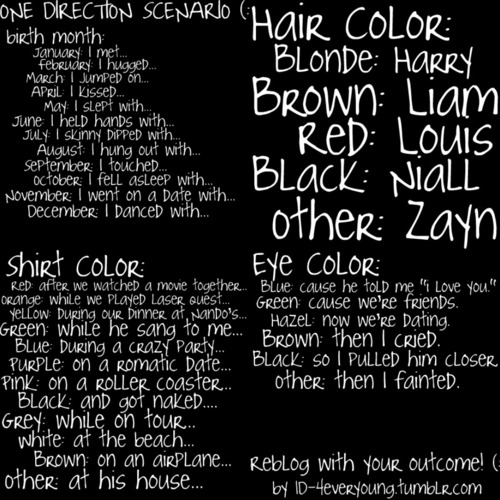 ONE DIRECTION SCENARIO (:
birth month:
January: I met...
february: I hugged...
March: I jumped on...
April: I kissed...
May: I slept with...
June: I held hands with...
July: I skinny dipped with...
August: I hung out with...
September: I touched...
October: I fell asleep with...
November: I went on a date with...
December: I danced with...
Hair Color:
Blonde: Harry
Brown: Liam
Red: Louis
Black: Niall
other: Zayn
Shirt Color:
Red: after we watched a movie together...
orange: while we played laser quest...
yellow: During our dinner at Nando's...
Green: while he sang to me...
Blue: During a crazy party...
Purple: on a romatic date...
Pink: on a roller coaster...
Black: and got naked....
Grey: while on tour...
white: at the beach...
Brown: on an airplane...
other: at his house...
Eye Color:
Blue: cause he told me "i love you."
Green: cause we're friends.
Hazel: now we're dating.
Brown: then I cried.
Black: so I pulled him closer
other: then I fainted.
Reblog with your outcome! (:
by 1D-4everyoung.tumblr.com